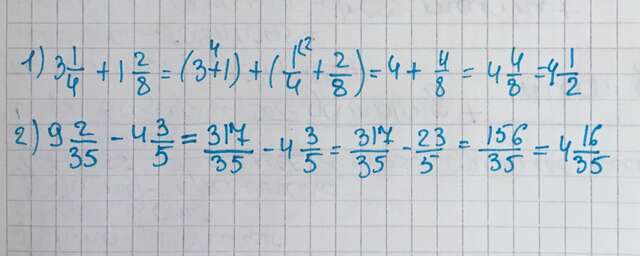 1) 3 1/4 + 1 2/8 = (3+1) + (1/4 + 2/8) = 4 + 4/8 = 4 4/8 = 4 1/2
2) 9 2/35 - 4 3/5 = 317/35 - 4 3/5 = 317/35 - 23/5 = 156/35 = 4 16/35